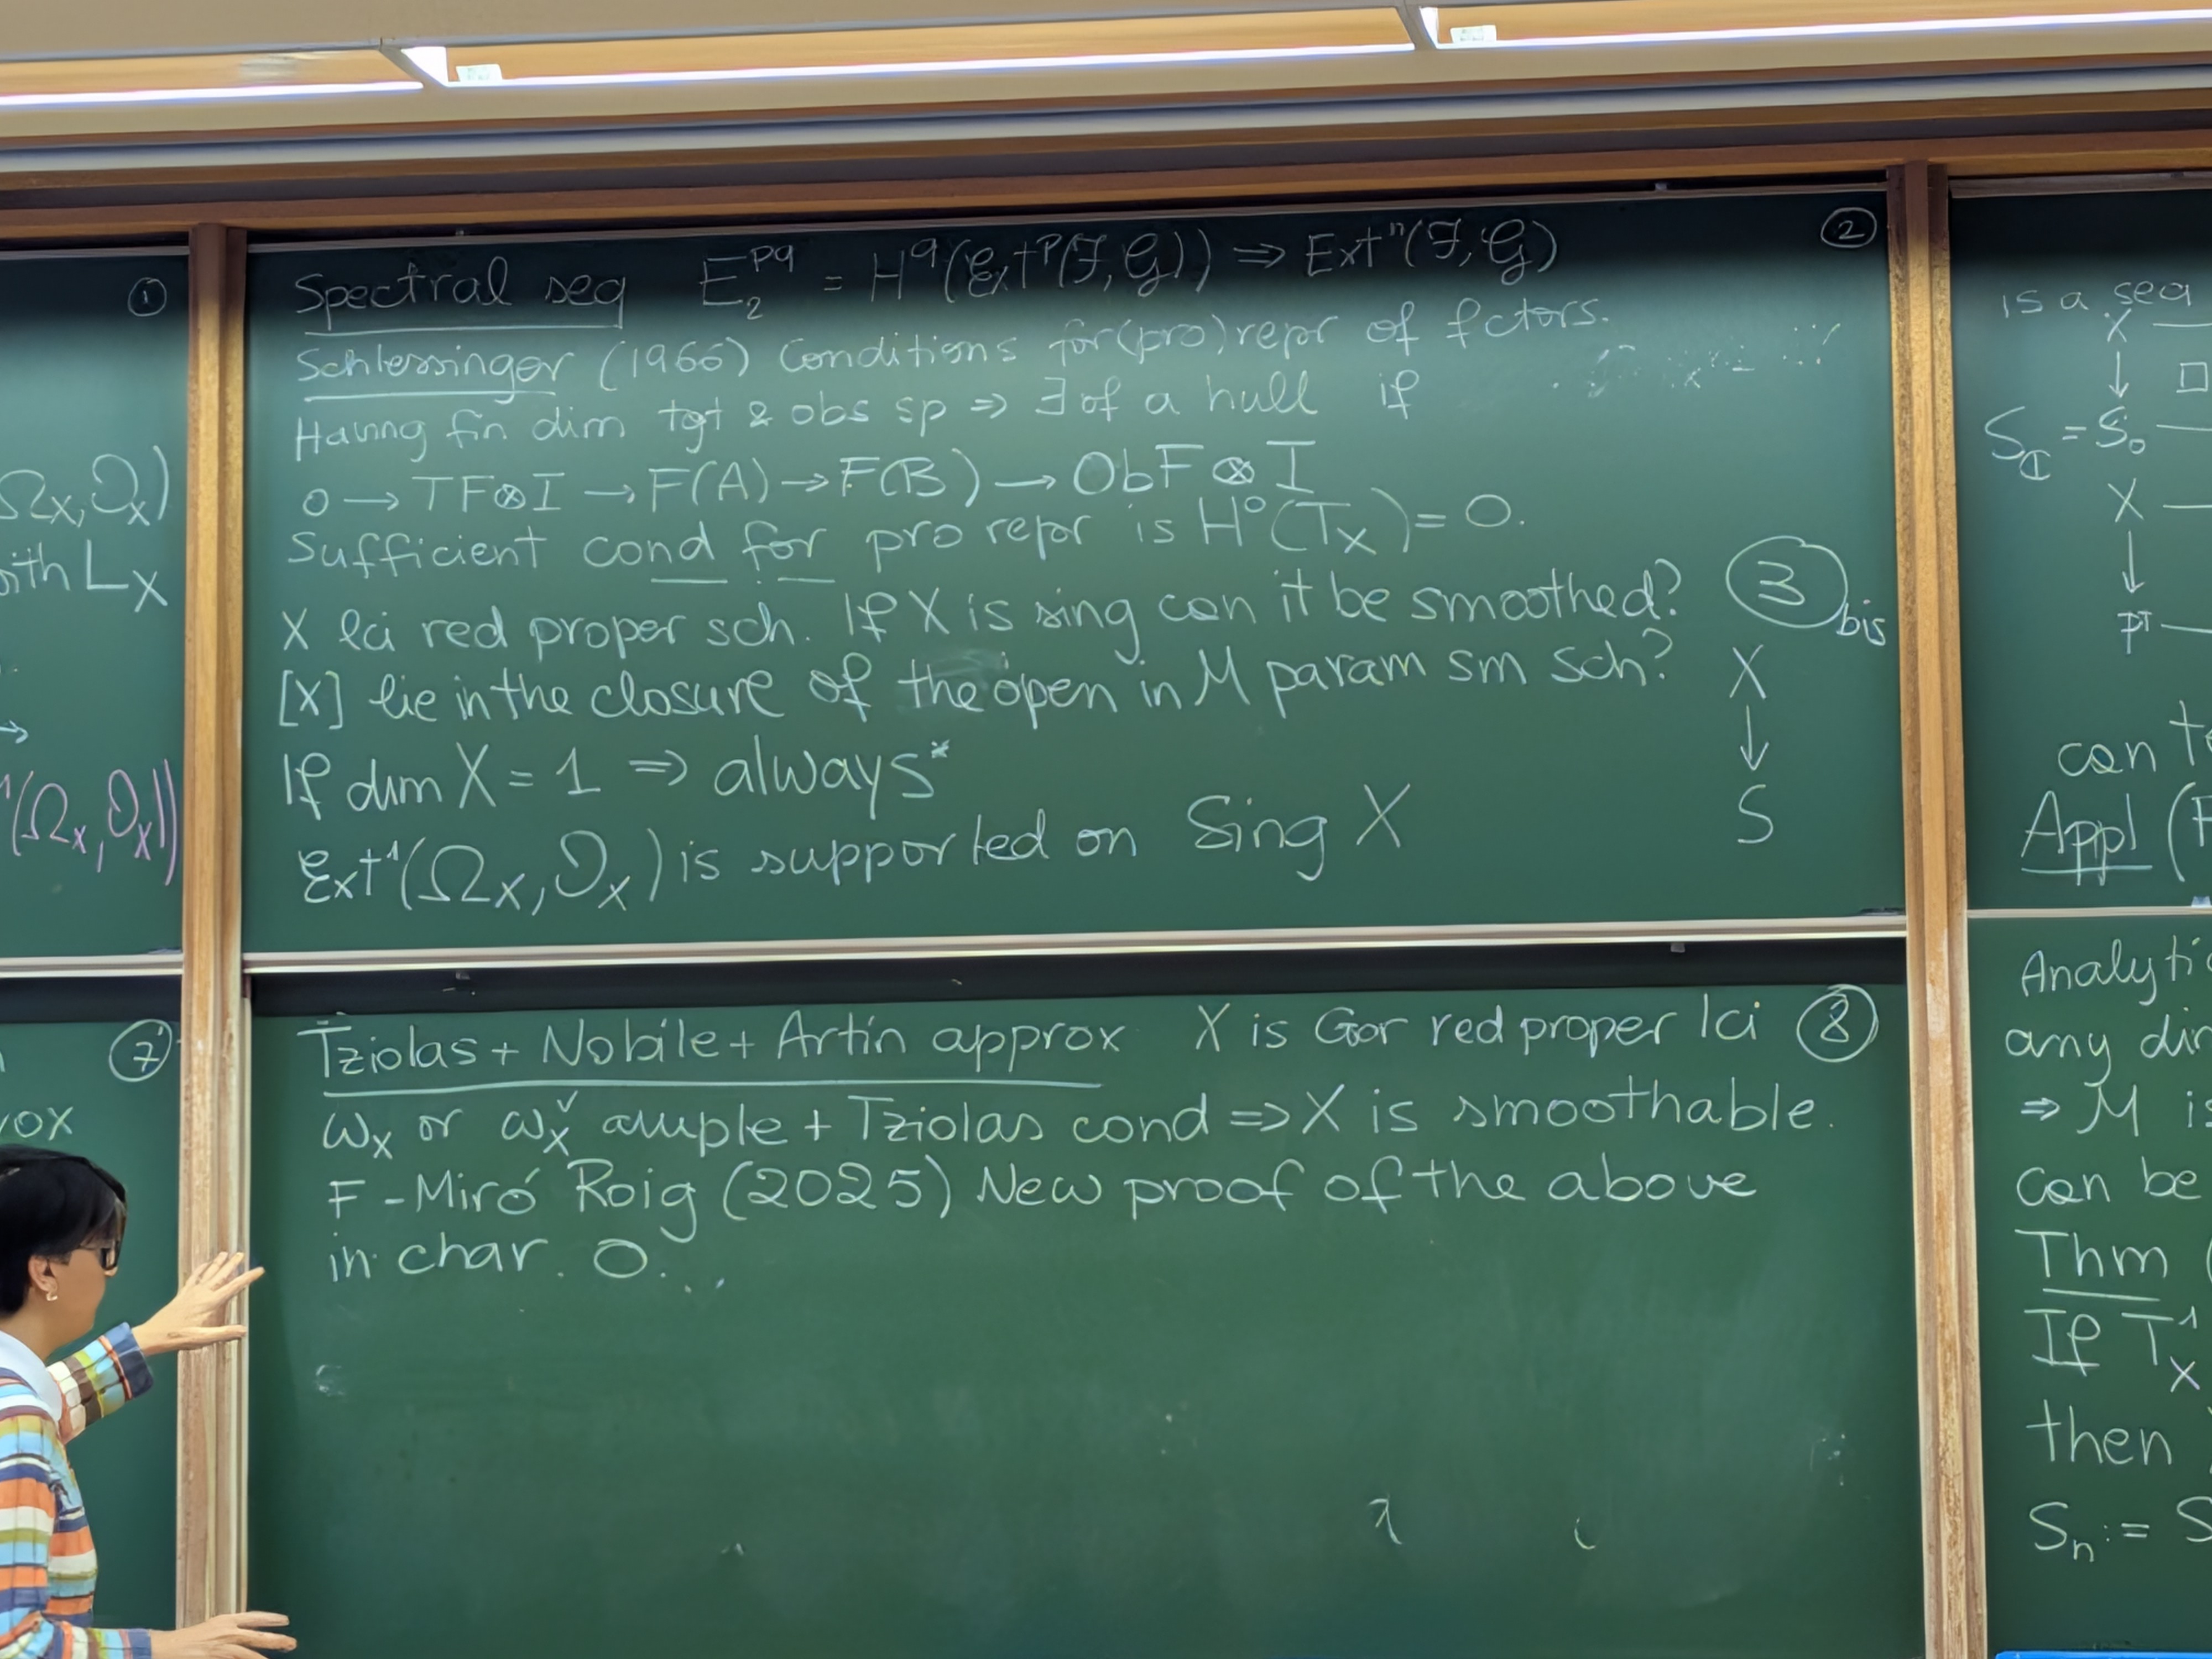 ①
Ω_X, O_X)
with L_X
→
¹(Ω_X, O_X))
⑦
rox
②
Spectral seq E_2^{pq} = H^q(Ext^p(F, G)) ⇒ Ext^n(F, G)
Schlessinger (1966) Conditions for (pro) repr of fctors.
Having fin dim tgt & obs sp ⇒ ∃ of a hull if
0 → TF⊗I → F(A) → F(B) → ObF ⊗ I
Sufficient cond for pro repr is H⁰(T_X) = 0.
③ bis
X lci red proper sch. If X is sing can it be smoothed?
[X] lie in the closure of the open in M param sm sch?
X
↓
S
If dim X = 1 ⇒ always*
Ext¹(Ω_X, O_X) is supported on Sing X
Tziolas + Nobile + Artin approx X is Gor red proper lci ⑧
ω_X or ω_X^∨ ample + Tziolas cond ⇒ X is smoothable.
F - Miró Roig (2025) New proof of the above
in char. 0.
is a seq
X
↓ □
S_① = S_0
X
↓
pt
can t
Appl (F
Analytic
any dim
⇒ M is
can be
Thm (
If T¹_X
then
S_n := S